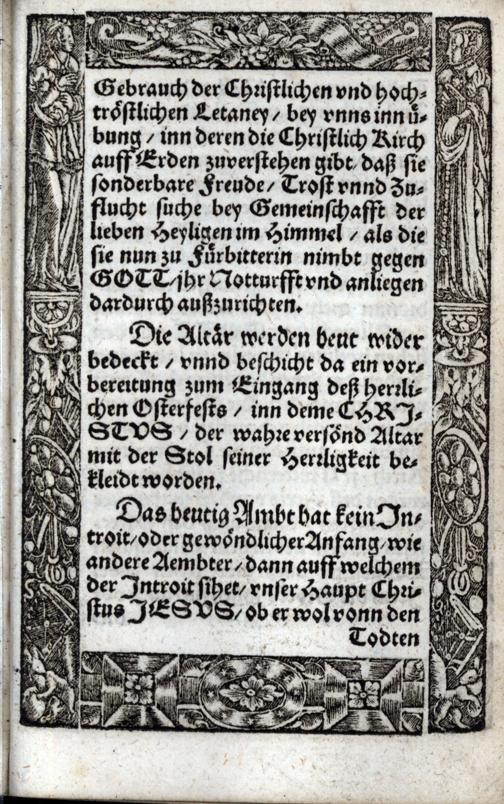 Gebrauch der Christlichen vnd hoch-
tröstlichen Letaney / bey vnns inn ü-
bung / inn deren die Christlich Kirch
auff Erden zuverstehen gibt / daß sie
sonderbare Freude / Trost vnnd Zu-
flucht suche bey Gemeinschafft der
lieben Heyligen im Himmel / als die
sie nun zu Fürbitterin nimbt gegen
GOTT / jhr Notturfft vnd anliegen
dardurch außzurichten.
Die Altär werden heut wider
bedeckt / vnnd beschicht da ein vor-
bereitung zum Eingang deß herrli-
chen Osterfests / inn deme CHRJ-
STVS / der wahre versönd Altar
mit der Stol seiner Herrligkeit be-
kleidt worden.
Das heutig Ambt hat kein In-
troit / oder gewöndlicher Anfang / wie
andere Aembter / dann auff welchem
der Introit sihet / vnser Haupt Chri-
stus JESVS / ob er wol vonn den
Todten